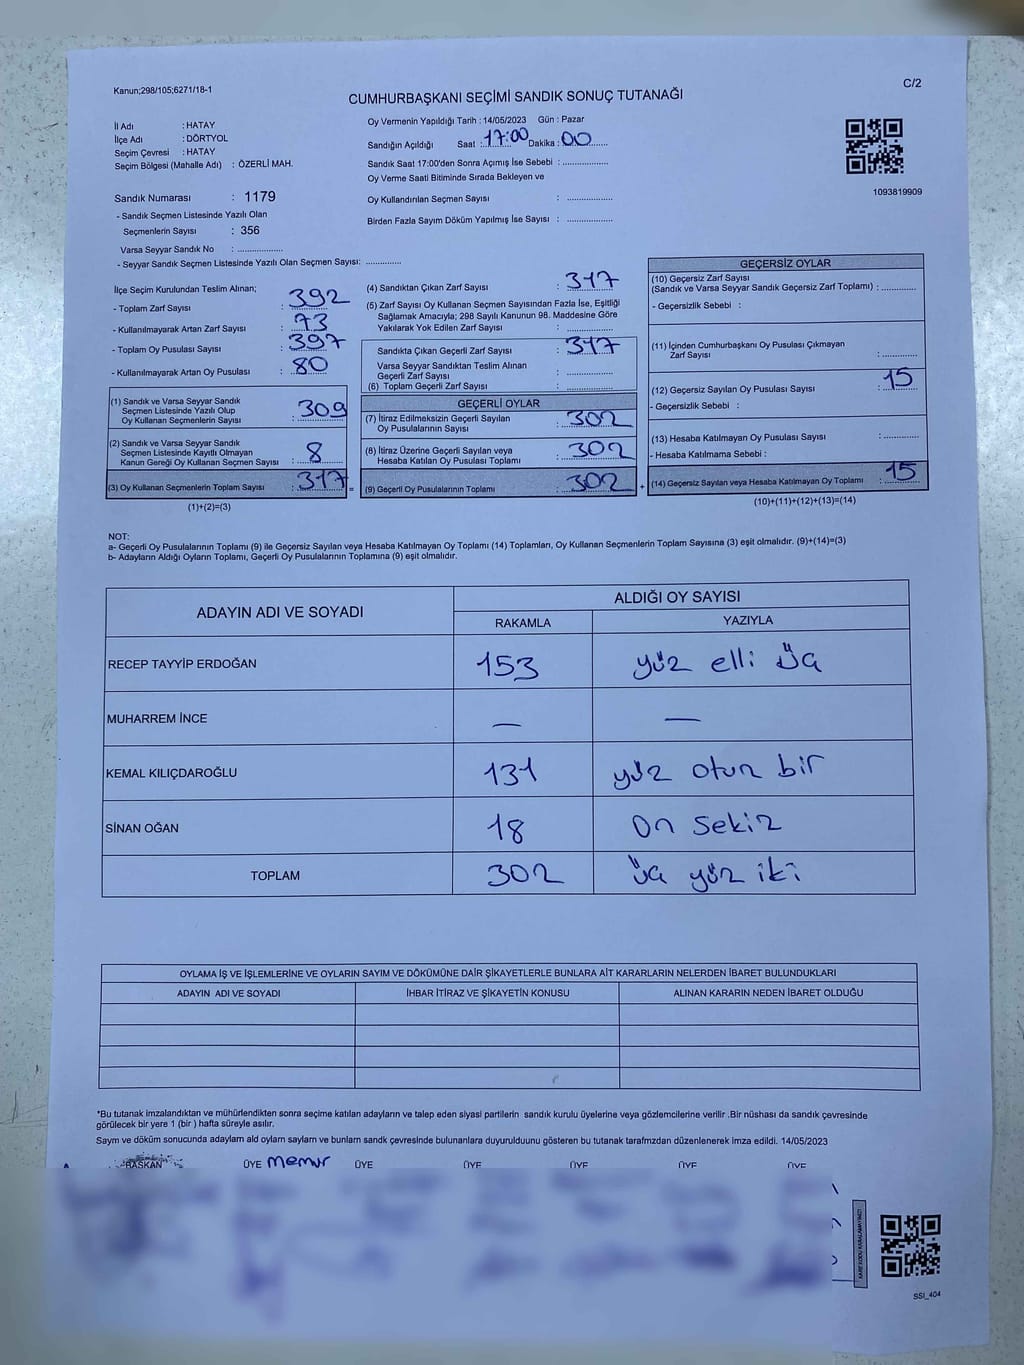 Kanun;298/105;6271/18-1
C/2
CUMHURBAŞKANI SEÇİMİ SANDIK SONUÇ TUTANAĞI
İl Adı : HATAY
İlçe Adı : DÖRTYOL
Seçim Çevresi : HATAY
Seçim Bölgesi (Mahalle Adı) : ÖZERLİ MAH.
Oy Vermenin Yapıldığı Tarih : 14/05/2023 Gün : Pazar
Sandığın Açıldığı Saat : 17:00 Dakika : 00
Sandık Saat 17:00'den Sonra Açımış İse Sebebi : ..............
Oy Verme Saati Bitiminde Sırada Bekleyen ve
Oy Kullandırılan Seçmen Sayısı : ..............
Birden Fazla Sayım Döküm Yapılmış İse Sayısı : ..............
1093819909
Sandık Numarası : 1179
- Sandık Seçmen Listesinde Yazılı Olan
Seçmenlerin Sayısı : 356
Varsa Seyyar Sandık No : ..............
- Seyyar Sandık Seçmen Listesinde Yazılı Olan Seçmen Sayısı: ..............
İlçe Seçim Kurulundan Teslim Alınan;
- Toplam Zarf Sayısı : 392
- Kullanılmayarak Artan Zarf Sayısı : 73
- Toplam Oy Pusulası Sayısı : 397
- Kullanılmayarak Artan Oy Pusulası : 80
(1) Sandık ve Varsa Seyyar Sandık
Seçmen Listesinde Yazılı Olup
Oy Kullanan Seçmenlerin Sayısı : 309
(2) Sandık ve Varsa Seyyar Sandık
Seçmen Listesinde Kayıtlı Olmayan
Kanun Gereği Oy Kullanan Seçmen Sayısı : 8
(3) Oy Kullanan Seçmenlerin Toplam Sayısı : 317 =
(1)+(2)=(3)
(4) Sandıktan Çıkan Zarf Sayısı : 317
(5) Zarf Sayısı Oy Kullanan Seçmen Sayısından Fazla İse, Eşitliği
Sağlamak Amacıyla; 298 Sayılı Kanunun 98. Maddesine Göre
Yakılarak Yok Edilen Zarf Sayısı : ..............
Sandıkta Çıkan Geçerli Zarf Sayısı : 317
Varsa Seyyar Sandıktan Teslim Alınan
Geçerli Zarf Sayısı : ..............
(6) Toplam Geçerli Zarf Sayısı : ..............
GEÇERLİ OYLAR
(7) İtiraz Edilmeksizin Geçerli Sayılan
Oy Pusulalarının Sayısı : 302
(8) İtiraz Üzerine Geçerli Sayılan veya
Hesaba Katılan Oy Pusulası Toplamı : 302
(9) Geçerli Oy Pusulalarının Toplamı : 302 +
GEÇERSİZ OYLAR
(10) Geçersiz Zarf Sayısı
(Sandık ve Varsa Seyyar Sandık Geçersiz Zarf Toplamı) : ..............
- Geçersizlik Sebebi :
(11) İçinden Cumhurbaşkanı Oy Pusulası Çıkmayan
Zarf Sayısı : ..............
(12) Geçersiz Sayılan Oy Pusulası Sayısı : 15
- Geçersizlik Sebebi :
(13) Hesaba Katılmayan Oy Pusulası Sayısı : ..............
- Hesaba Katılmama Sebebi :
(14) Geçersiz Sayılan veya Hesaba Katılmayan Oy Toplamı : 15
(10)+(11)+(12)+(13)=(14)
NOT:
a- Geçerli Oy Pusulalarının Toplamı (9) ile Geçersiz Sayılan veya Hesaba Katılmayan Oy Toplamı (14) Toplamları, Oy Kullanan Seçmenlerin Toplam Sayısına (3) eşit olmalıdır. (9)+(14)=(3)
b- Adayların Aldığı Oyların Toplamı, Geçerli Oy Pusulalarının Toplamına (9) eşit olmalıdır.
ADAYIN ADI VE SOYADI
ALDIĞI OY SAYISI
RAKAMLA YAZIYLA
RECEP TAYYİP ERDOĞAN 153 yüz elli üç
MUHARREM İNCE — —
KEMAL KILIÇDAROĞLU 131 yüz otuz bir
SİNAN OĞAN 18 On sekiz
TOPLAM 302 üç yüz iki
OYLAMA İŞ VE İŞLEMLERİNE VE OYLARIN SAYIM VE DÖKÜMÜNE DAİR ŞİKAYETLERLE BUNLARA AİT KARARLARIN NELERDEN İBARET BULUNDUKLARI
ADAYIN ADI VE SOYADI İHBAR İTİRAZ VE ŞİKAYETİN KONUSU ALINAN KARARIN NEDEN İBARET OLDUĞU
*Bu tutanak imzalandıktan ve mühürlendikten sonra seçime katılan adayların ve talep eden siyasi partilerin sandık kurulu üyelerine veya gözlemcilerine verilir .Bir nüshası da sandık çevresinde
görülecek bir yere 1 (bir ) hafta süreyle asılır.
Sayım ve döküm sonucunda adayların ald oyların sayları ve bunların sandk çevresinde bulunanlara duyurulduunu gösteren bu tutanak tarafmzdan düzenlenerek imza edildi. 14/05/2023
BAŞKAN ÜYE memur ÜYE ÜYE ÜYE ÜYE ÜYE
SSI_404